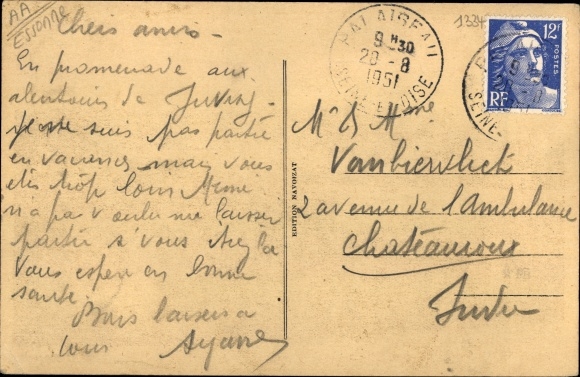 AA
ESSONNE
Chers amis -
En promenade aux
alentours de Juvisy.
suis pas partie
en vacances mais vous
etes trop loin Meme
n a pas voulu me laisser
partir si vous
Vous espere en bonne
santé.
Bons baisers a
tous
EDITION NAVOIZAT
PALAISEAU
9H30
20-8
1951
SEINE-ET-OISE
12F
POSTES
RF
SEINE-
Mr & Mme
Vanbiervliet
2 avenue de l'ambulance
Chateauroux
Indre